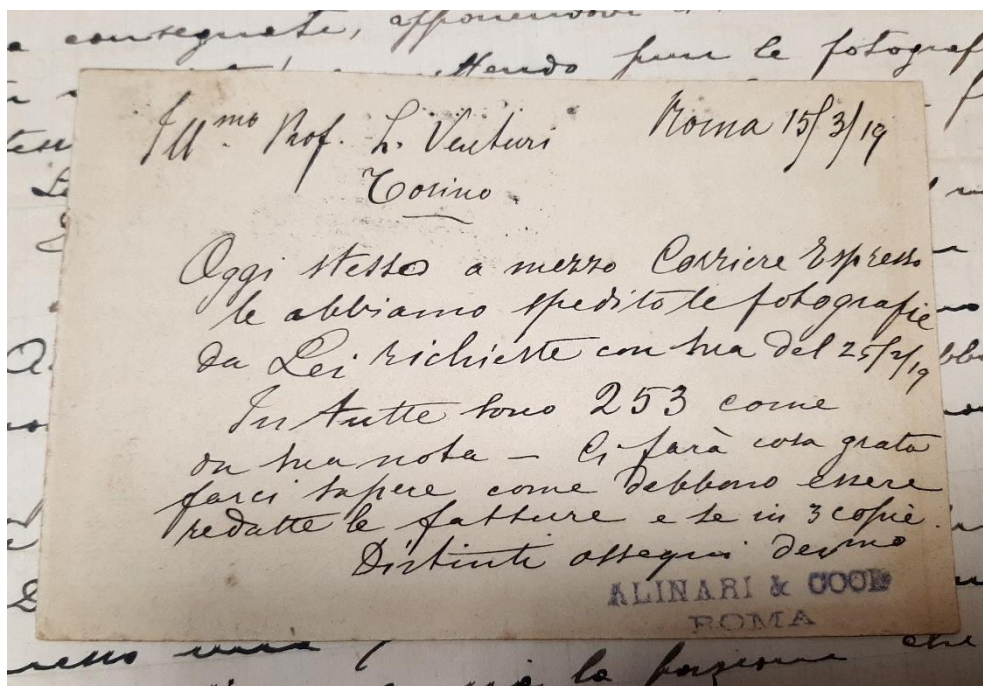 a consegnate, apponendovi
le fotograf
Ill.mo Prof. L. Venturi
Roma 15/3/19
Torino
Oggi stesso a mezzo Corriere Espresso
le abbiamo spedito le fotografie
da Lei richieste con sua del 25/2/19
In tutte sono 253 come
da sua nota — Ci farà cosa grata
farci sapere come debbono essere
redatte le fatture e se in 3 copie.
Distinti ossequi devmo
ALINARI & COOK
ROMA
una
la
che